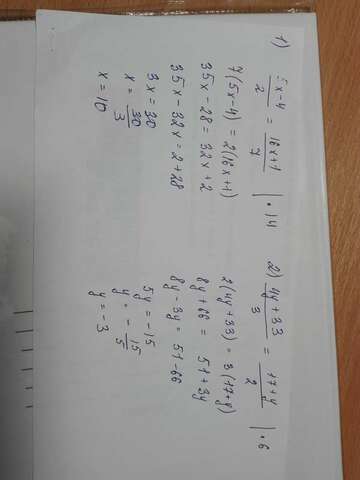 1) (5x-4)/2 = (16x+1)/7 | · 14
7(5x-4) = 2(16x+1)
35x - 28 = 32x + 2
35x - 32x = 2 + 28
3x = 30
x = 30/3
x = 10
2) (4y+33)/3 = (17+y)/2 | · 6
2(4y+33) = 3(17+y)
8y + 66 = 51 + 3y
8y - 3y = 51 - 66
5y = -15
y = - 15/5
y = -3